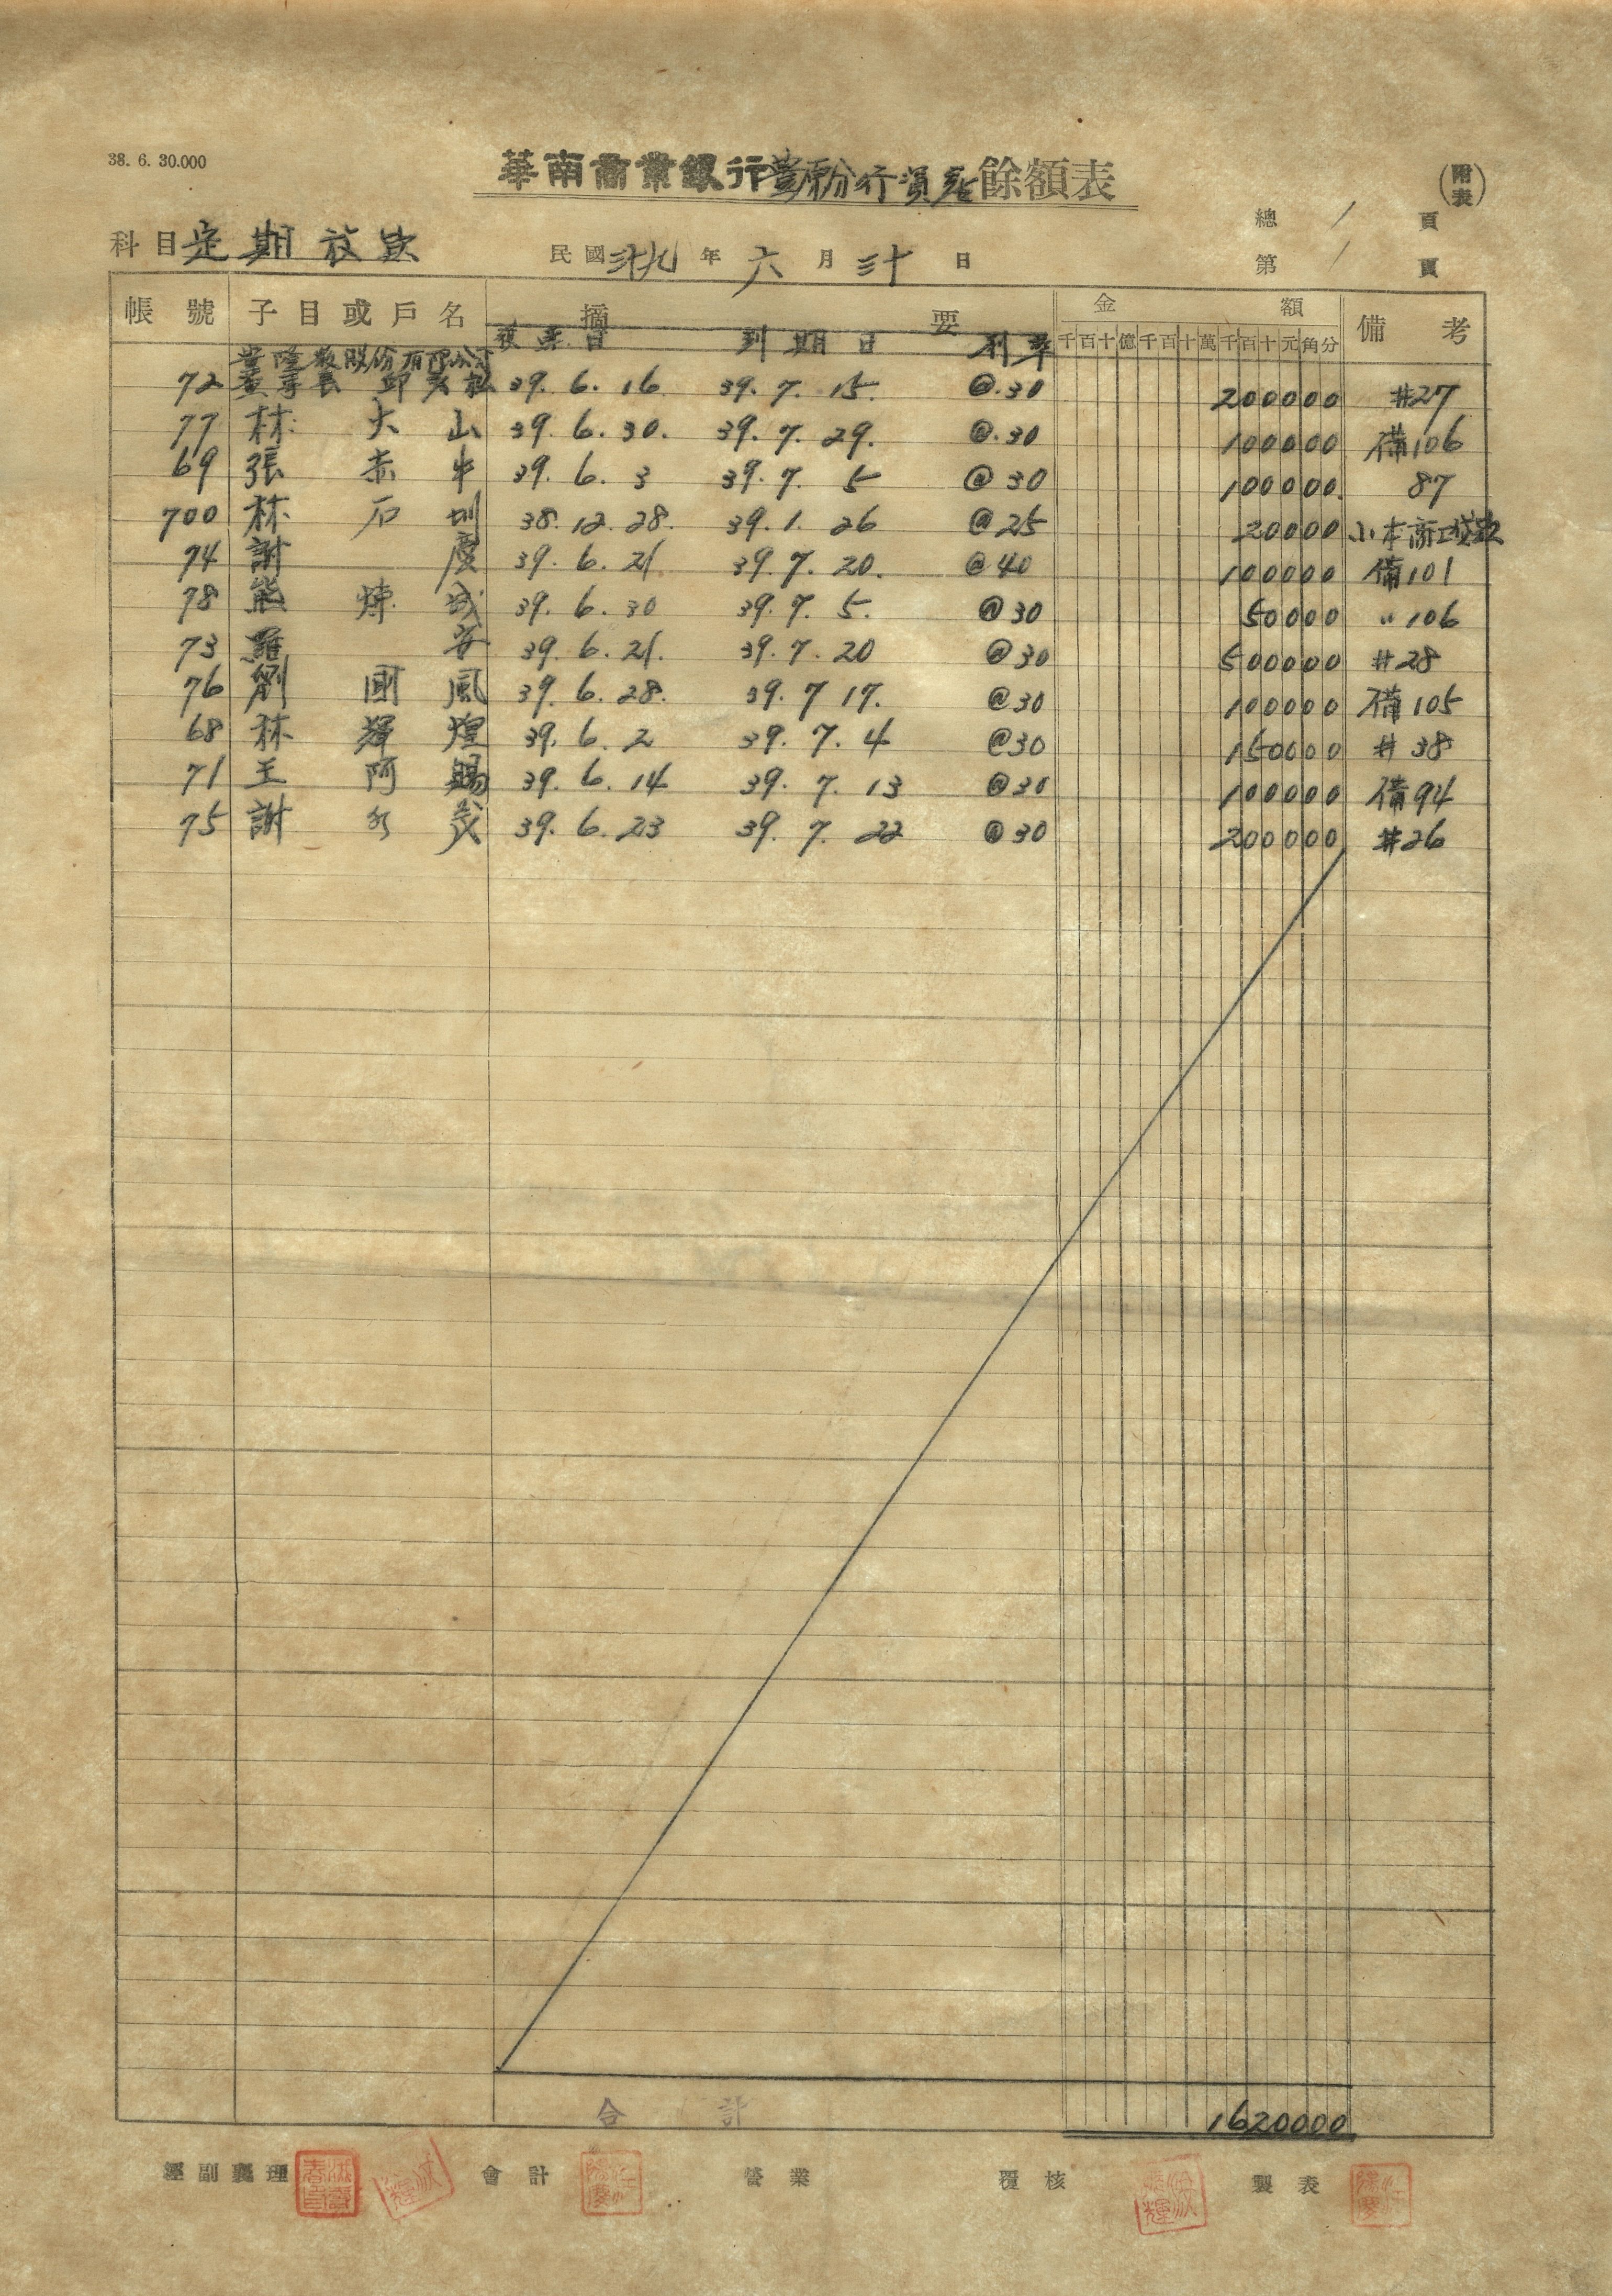 38. 6. 30.000
華南商業銀行豐原分行渭墘餘額表
(附表)
總 1 頁
科目定期放款
民國三十九年六月三十日
第 1 頁
帳號 子目或戶名 摘要 金額 備考
到期日 利率 千百十億千百十萬千百十元角分
股份有限公司
72 董事長 39. 6. 16 39. 7. 15. @.30 200000 #27
77 林大山 39. 6. 30. 39. 7. 29. @.30 100000 備106
69 張赤牛 39. 6. 3 39. 7. 5 @30 100000 87
700 林石圳 38. 12. 28. 39. 1. 26 @25 20000 小本商工貸款
74 謝慶 39. 6. 21 39. 7. 20. @40 100000 備101
78 熊煉成 39. 6. 30 39. 7. 5. @30 50000 〃106
73 羅安 39. 6. 21. 39. 7. 20 @30 500000 #28
76 劉國風 39. 6. 28. 39. 7 17. @30 100000 備105
68 林輝煌 39. 6. 2 39. 7. 4 @30 150000 # 38
71 王阿錫 39. 6. 14 39. 7. 13 @30 100000 備94
75 謝水茂 39. 6. 23 39. 7. 22 @30 200000 #26
合計 1620000
經副襄理 會計 營業 覆核 製表